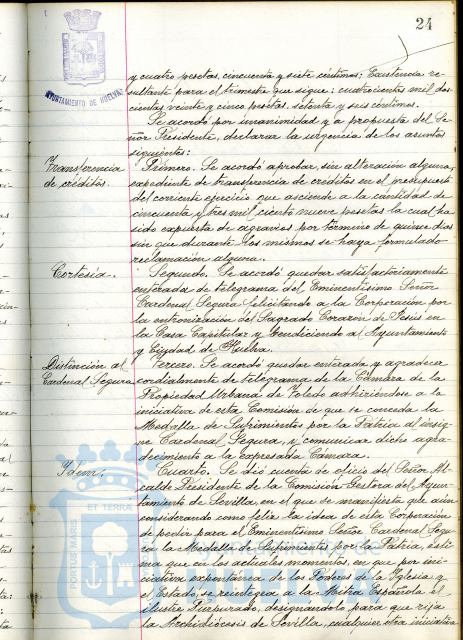 24
AYUNTAMIENTO DE HUELVA
y cuatro pesetas, cincuenta y siete céntimos; Existencia re-
sultante para el trimestre que sigue: cuatrocientas mil dos-
cientas veinte y cinco pesetas, setenta y seis céntimos.
Se acordó por unanimidad y a propuesta del Se-
ñor Presidente, declarar la urgencia de los asuntos
siguientes:
Transferencia de créditos.
Primero. Se acordó aprobar, sin alteración alguna,
expediente de transferencia de créditos en el presupuesto
del corriente ejercicio que asciende a la cantidad de
cincuenta y tres mil ciento nueve pesetas la cual ha
sido expuesta de agravios por término de quince días
sin que durante los mismos se haya formulado
reclamación alguna.
Cortesía.
Segundo. Se acordó quedar satisfactoriamente
enterada de telegrama del Eminentísimo Señor
Cardenal Segura felicitando a la Corporación por
la entronización del Sagrado Corazón de Jesús en
la Casa Capitular y bendiciendo al Ayuntamiento
y Ciudad de Huelva.
Distinción al Cardenal Segura
Tercero. Se acordó quedar enterada y agradecer
cordialmente de telegrama de la Cámara de la
Propiedad Urbana de Toledo adhiriéndose a la
iniciativa de esta Comisión de que se conceda la
Medalla de Sufrimientos por la Patria al insig-
ne Cardenal Segura, y comunicar dicho agra-
decimiento a la expresada Cámara.
Idem.
Cuarto. Se dió cuenta de oficio del Señor Al-
calde Presidente de la Comisión Gestora del Ayun-
tamiento de Sevilla, en el que manifiesta que aún
considerando como feliz la idea de esta Corporación
de pedir para el Eminentísimo Señor Cardenal Segu-
ra la Medalla de Sufrimientos por la Patria, esti-
ma que en los actuales momentos, en que por ini-
ciativa expontánea de los Poderes de la Iglesia y
el Estado, se reintegra a la Mitra Española el
ilustre Purpurado, designándolo para que rija
la Archidiócesis de Sevilla, cualquier otra iniciativa
PORTUS MARIS ET TERRAE